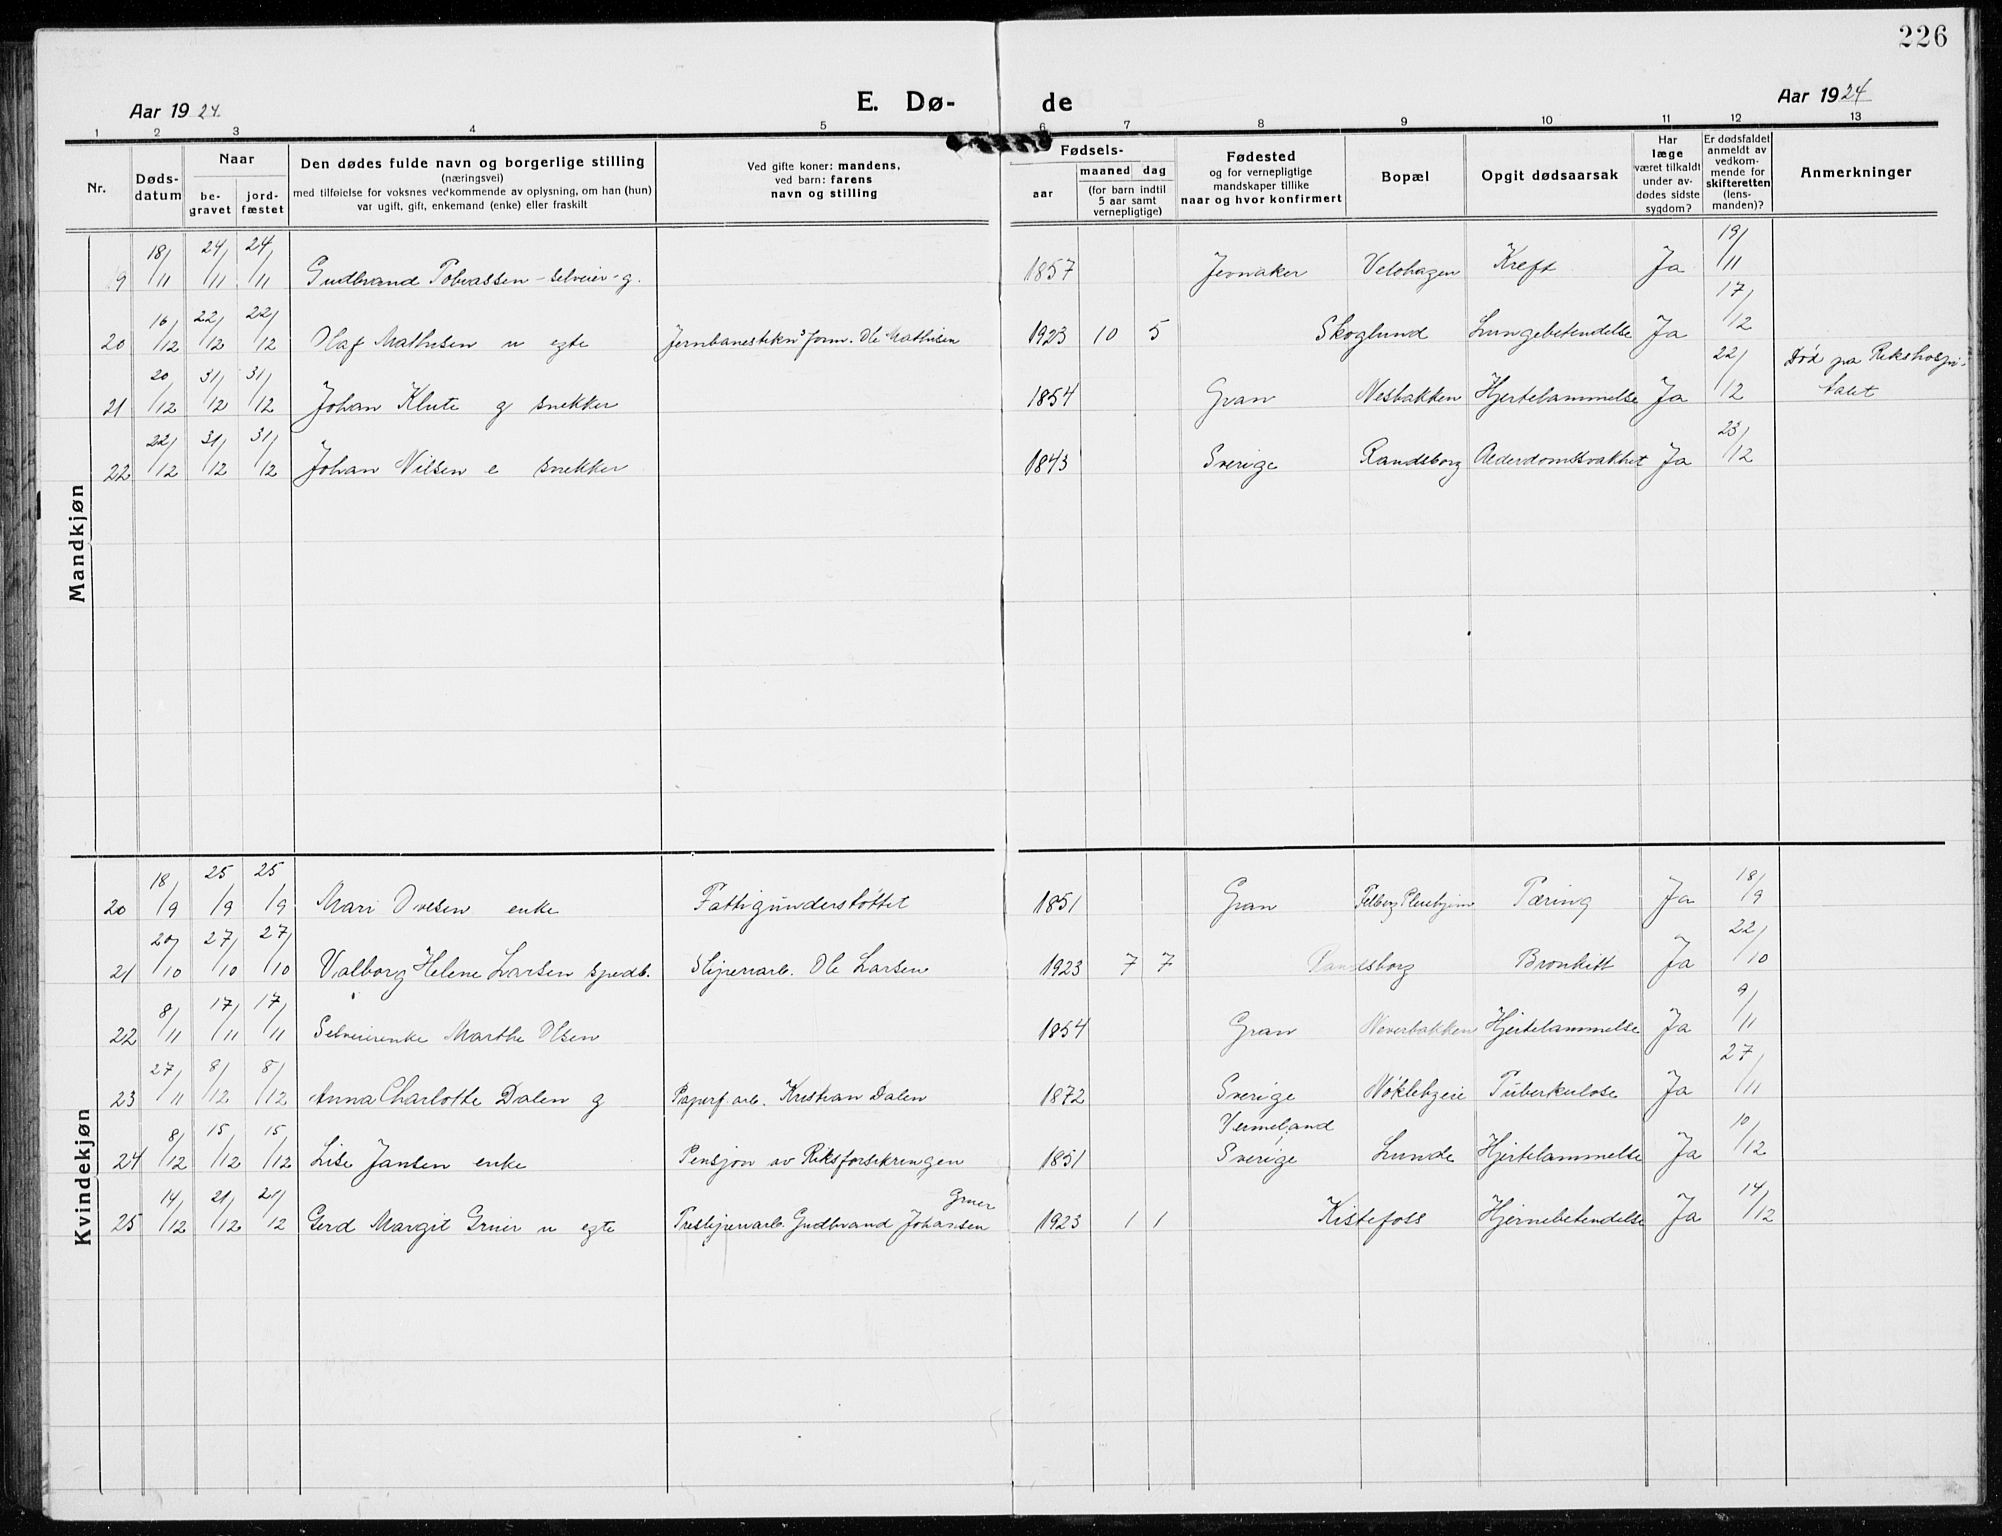 226
Aar 1924. E. Dø- de Aar 1924
1 2 3 4 5 6 7 8 9 10 11 12 13
Nr.
Døds-
datum
Naar
be-
gravet
jord-
fæstet
Den dødes fulde navn og borgerlige stilling
(næringsvei)
med tilføielse for voksnes vedkommende av oplysning, om han (hun)
var ugift, gift, enkemand (enke) eller fraskilt
Ved gifte koner: mandens,
ved barn: farens
navn og stilling
Fødsels-
aar
maaned dag
(for barn indtil
5 aar samt
vernepligtige)
Fødested
og for vernepligtige
mandskaper tillike
naar og hvor konfirmert
Bopæl
Opgit dødsaarsak
Har
læge
været tilkaldt
under av-
dødes sidste
sygdom?
Er dødsfaldet
anmeldt av
vedkom-
mende for
skifteretten
(lens-
manden)?
Anmerkninger
Mandkjøn
19 18/11 24/11 24/11 Gudbrand Tobiassen - selveier - g. 1857 Jevnaker Velohagen Kreft Ja 19/11
20 16/12 22/12 22/12 Olaf Mathisen u egte Ole Mathisen 1923 10 5 Skoglund Lungebetendelse Ja 17/12
21 20/12 31/12 31/12 Johan Klute g snekker 1854 Gran Nesbakken Hjertelammelse Ja 22/12 Død pa Rikshospi-
talet
22 22/12 31/12 31/12 Johan Nilsen e snekker 1843 Sverige Randsborg Alderdomssvakhet Ja 23/12
Kvindekjøn
20 18/9 25/9 25/9 Mari Ovesen enke Fattigunderstøttet 1851 Gran Pleiehjem Tæring Ja 18/9
21 20/10 27/10 27/10 Valborg Helene Larsen spedb. Sliperiarb. Ole Larsen 1923 7 7 Randsborg Bronkitt Ja 22/10
22 8/11 17/11 17/11 Selveierenke Marthe Olsen 1854 Gran Neverbakken Hjertelammelse Ja 9/11
23 27/11 8/12 8/12 Anna Charlotte Dalen g Papirf arb. Kristian Dalen 1872 Sverige Nøklebyeie Tuberkulose Ja 27/11
24 8/12 15/12 15/12 Lise Jansen enke Pensjon av Riksforsikringen 1851 Vermeland
Sverige Lunde Hjertelammelse Ja 10/12
25 14/12 21/12 21/12 Gerd Margit Gruer u egte Tresliperiarb. Gudbrand Johansen Gruer 1923 1 1 Kistefoss Hjernebetendelse Ja 14/12